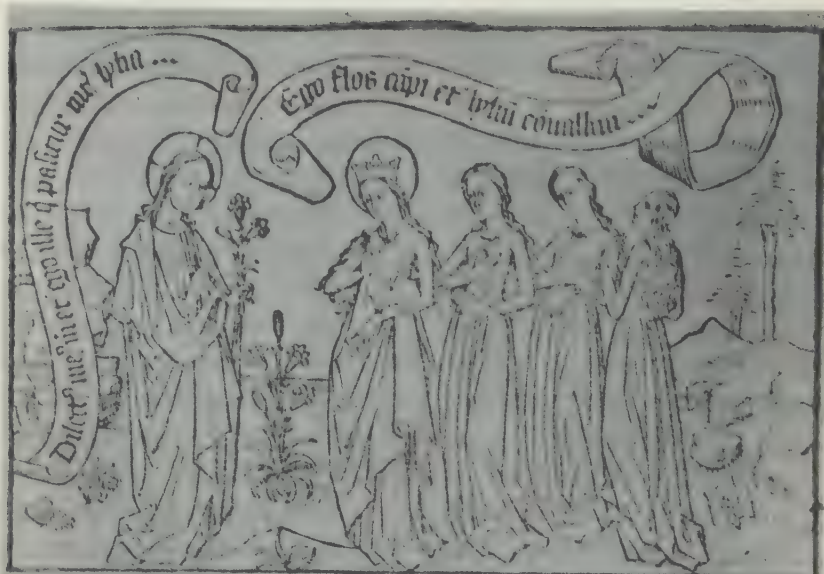 Dilect9 me9 in et ego ille q pascitur int' lylia ...
Ego flos campi et lyliũ conuallium ...